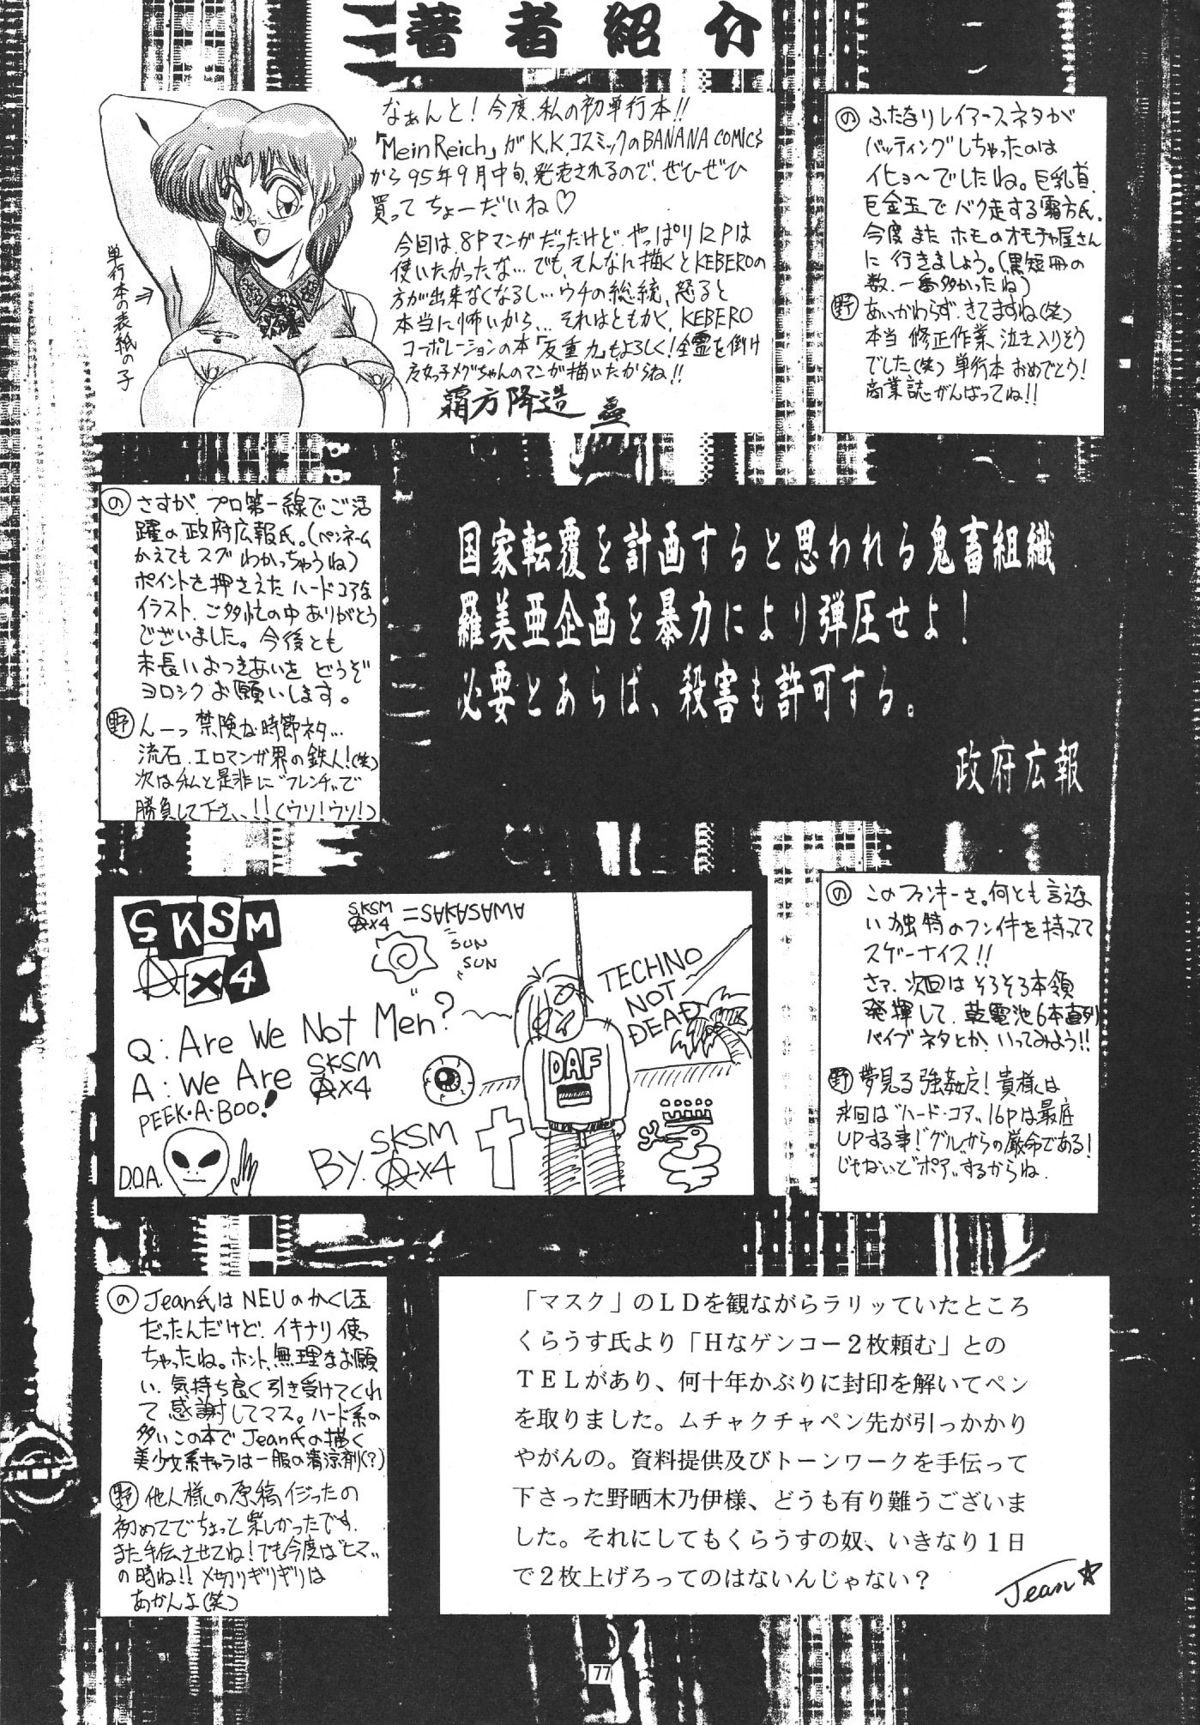 著者紹介
なぁんと！今度、私の初単行本!!
「Mein Reich」がK.K.コスミックのBANANA COMICS
から95年9月中旬、発売されるので、ぜひぜひ
買ってちょーだいね♡
今回は、8Pマンガだったけど、やっぱり12Pは
使いたかったな…でも、そんなに描くとKEBEROの
方が出来なくなるし…ウチの総統、怒ると
本当に怖いから…それはともかく、KEBERO
コーポレーションの本「反重力」もよろしく！全霊を傾け
メグちゃんのマンガ描いたからね!!
霜方降造
単行本の表紙の子
の ふたなりレイアースネタが
バッティングしちゃったのは
イヒョ〜でしたね。巨乳真、
巨金玉でバク走する霜方氏。
今度また ホモのオモチャ屋さん
に行きましょう。(黒短冊の
数、一番多かったね)
野 あいかわらず、きてますね(笑)
本当 修正作業、泣き入りそう
でした(笑) 単行本 おめでとう！
商業誌がんばってね!!
の さすが、プロ第一線でご活
躍の政府広報氏。(ペンネーム
かえても スグわかっちゃうね)
ポイントを押さえたハードコアな
イラスト、ご多忙の中ありがとう
ございました。今後とも
末長いおつきあいを どうぞ
ヨロシクお願いします。
野 んーっ 禁険な時節ネタ…
流石、エロマンガ界の鉄人！(笑)
次は私と是非に"フレンチ"で
勝負して下さい!!(ウソ！ウソ！)
国家転覆を計画すると思われる鬼畜組織
羅美亜企画を暴力により弾圧せよ！
必要とあらば、殺害も許可する。
政府広報
SKSM
Ⓐx4
SKSM
Ⓐx4
=SAKASAMWA
SUN
SUN
SUN
Q: Are We Not Men?
A: We Are
SKSM
Ⓐx4
PEEK·A·BOO!
D.O.A.
BY. SKSM
Ⓐx4
TECHNO
NOT
DEAD
DAF
の このファンキーさ。何とも言えな
い独特のフン件を持ってて
スゲーナイス!!
さァ、次回はそろそろ本領
発揮して、乾電池6本直列
バイブネタとか、いってみよう!!
野 夢見る強姦友！貴様は
次回は"ハード・コア"16Pは最底
UPする事！"グル"からの厳命である！
じゃないと"ポア"するからね.
の Jean氏はNEUのかくし玉
だったんだけど、イキナリ使っ
ちゃったね。ホント、無理なお願
い、気持ち良く引き受けてくれ
て感謝してマス。ハード系の
多いこの本でJean氏の描く
美少女系キャラは一服の清涼剤(?)
野 他人様の原稿、イジったの
初めてでちょっと楽しかったです.
また手伝させてね！でも今度は"ヒマ"
の時ね!!〆切りギリギリは
あかんよ(笑)
「マスク」のLDを観ながらラリッていたところ
くらうす氏より「Hなゲンコー2枚頼む」との
TELがあり、何十年かぶりに封印を解いてペン
を取りました。ムチャクチャペン先が引っかかり
やがんの。資料提供及びトーンワークを手伝って
下さった野晒木乃伊様、どうも有り難うございま
した。それにしてもくらうすの奴、いきなり1日
で2枚上げろってのはないんじゃない？
Jean☆
77